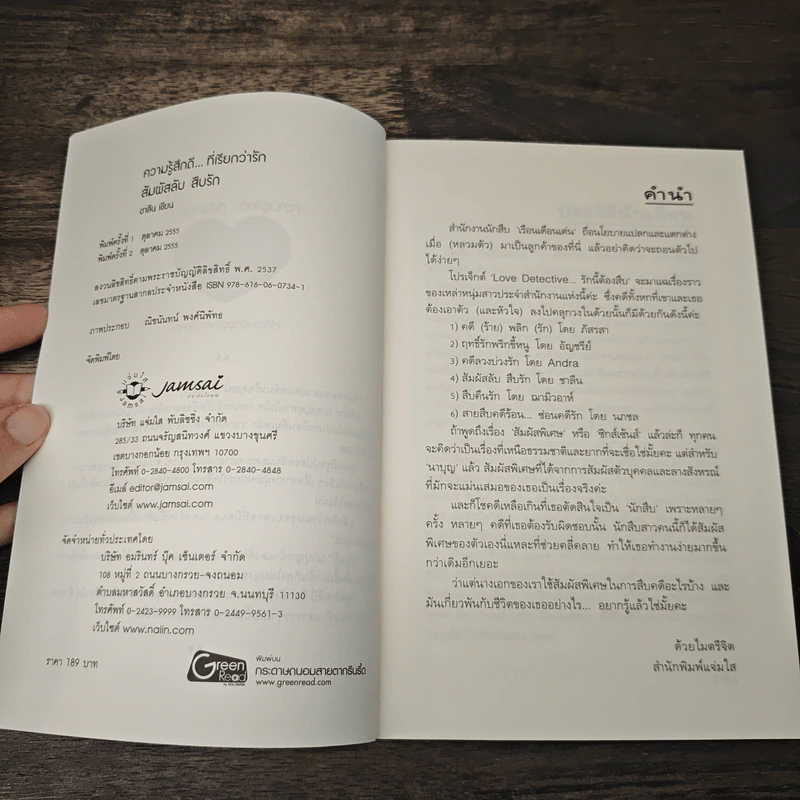 ความรู้สึกดี... ที่เรียกว่ารัก
สัมผัสลับ สืบรัก
ชาลีน เขียน
พิมพ์ครั้งที่ 1 ตุลาคม 2555
พิมพ์ครั้งที่ 2 ตุลาคม 2555
สงวนลิขสิทธิ์ตามพระราชบัญญัติลิขสิทธิ์ พ.ศ. 2537
เลขมาตรฐานสากลประจำหนังสือ ISBN 978-616-06-0734-1
ภาพประกอบ ณิชนันทน์ พงศ์นิพัทธ
จัดพิมพ์โดย
แจ่มใส
jamsai
jamsai
บริษัท แจ่มใส พับลิชชิ่ง จำกัด
285/33 ถนนจรัญสนิทวงศ์ แขวงบางขุนศรี
เขตบางกอกน้อย กรุงเทพฯ 10700
โทรศัพท์ 0-2840-4800 โทรสาร 0-2840-4848
อีเมล์ editor@jamsai.com
เว็บไซต์ www.jamsai.com
จัดจำหน่ายทั่วประเทศโดย
บริษัท อมรินทร์ บุ๊ค เซ็นเตอร์ จำกัด
108 หมู่ที่ 2 ถนนบางกรวย-จงถนอม
ตำบลมหาสวัสดิ์ อำเภอบางกรวย จ.นนทบุรี 11130
โทรศัพท์ 0-2423-9999 โทรสาร 0-2449-9561-3
เว็บไซต์ www.naiin.com
ราคา 189 บาท
Green Read
พิมพ์บน
กระดาษถนอมสายตากรีนรี้ด
www.greenread.com
คำนำ
สำนักงานนักสืบ 'เรือนเดือนเด่น' ถือนโยบายแปลกและแตกต่าง
เมื่อ (หลวมตัว) มาเป็นลูกค้าของที่นี่ แล้วอย่าคิดว่าจะถอนตัวไป
ได้ง่ายๆ
โปรเจ็กต์ 'Love Detective... รักนี้ต้องสืบ' จะมาแฉเรื่องราว
ของเหล่าหนุ่มสาวประจำสำนักงานแห่งนี้ค่ะ ซึ่งคดีทั้งหกที่เขาและเธอ
ต้องเอาตัว (และหัวใจ) ลงไปคลุกวงในด้วยนั้นก็มีด้วยกันดังนี้ค่ะ
1) คดี (ร้าย) พลิก (รัก) โดย ภัสรสา
2) ฤทธิ์รักพริกขี้หนู โดย อัญชรีย์
3) คดีลวงบ่วงรัก โดย Andra
4) สัมผัสลับ สืบรัก โดย ชาลีน
5) สืบคืนรัก โดย ฌามิวอาห์
6) สายสืบคดีร้อน... ซ่อนคดีรัก โดย นภชล
ถ้าพูดถึงเรื่อง 'สัมผัสพิเศษ' หรือ 'ซิกส์เซ้นส์' แล้วล่ะก็ ทุกคน
จะคิดว่าเป็นเรื่องที่เหนือธรรมชาติและยากที่จะเชื่อใช่มั้ยคะ แต่สำหรับ
'นาบุญ' แล้ว สัมผัสพิเศษที่ได้จากการสัมผัสตัวบุคคลและลางสังหรณ์
ที่มักจะแม่นเสมอของเธอเป็นเรื่องจริงค่ะ
และก็โชคดีเหลือเกินที่เธอตัดสินใจเป็น 'นักสืบ' เพราะหลายๆ
ครั้ง หลายๆ คดีที่เธอต้องรับผิดชอบนั้น นักสืบสาวคนนี้ก็ได้สัมผัส
พิเศษของตัวเองนี่แหละที่ช่วยคลี่คลาย ทำให้เธอทำงานง่ายมากขึ้น
กว่าเดิมอีกเยอะ
ว่าแต่นางเอกของเราใช้สัมผัสพิเศษในการสืบคดีอะไรบ้าง และ
มันเกี่ยวพันกับชีวิตของเธออย่างไร... อยากรู้แล้วใช่มั้ยคะ
ด้วยไมตรีจิต
สำนักพิมพ์แจ่มใส